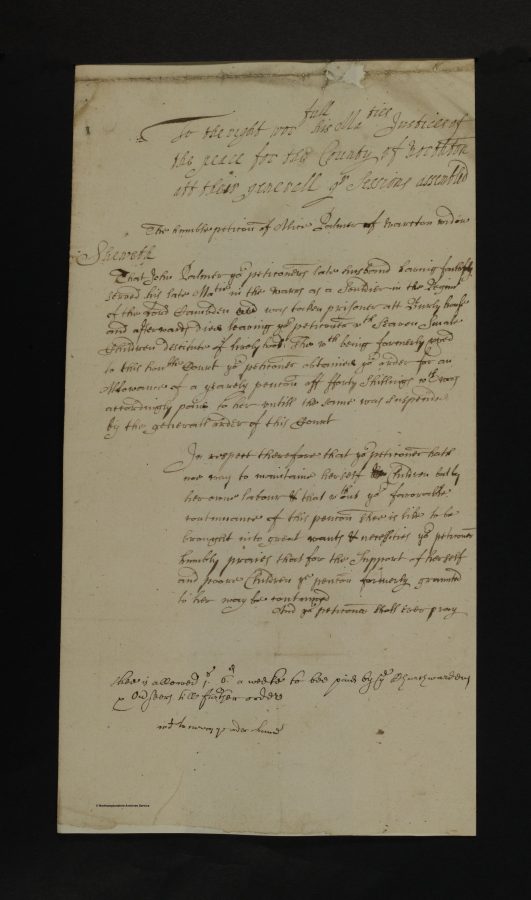 To the right wor full his Ma ties Justices of
the peace for the County of North'ton
att their generall qr Sessions assembled
The humble peticon of Alice Palmer of Warcton widow
Sheweth
That John Palmer yor peticoners late husband haveing faithfully
served his late Matie in the warrs as a Souldier in the Regimt
of the Lord Cambden and was taken prisoner att Burly house
and afterwards died leaveing yor peticoner wth Seaven Small
Children destitute of livelyhood The wch being formerly
to this honble Court yor peticoner obtained yor order for an
Allowance of a yearely pencon off fforty Shillings wch was
accordingly paid to her untill the same was suspended
by the generall order of this Court
In respect therefore that yor peticoner hath
noe way to maintaine herself & Children but by
her owne labour & that wthout yor favorable
continuance of this pencon shee is like to be
brought into great wants & necessities yor peticoner
humbly praies that for the Support of herself
and poore Children ye pencon formerly granted
to her may be continued
And yor peticoner shall ever pray
shee is allowed 1s 6d a weeke to bee paid by ye Churchwardens
& Ovrseers till further order
© Northamptonshire Archives Service